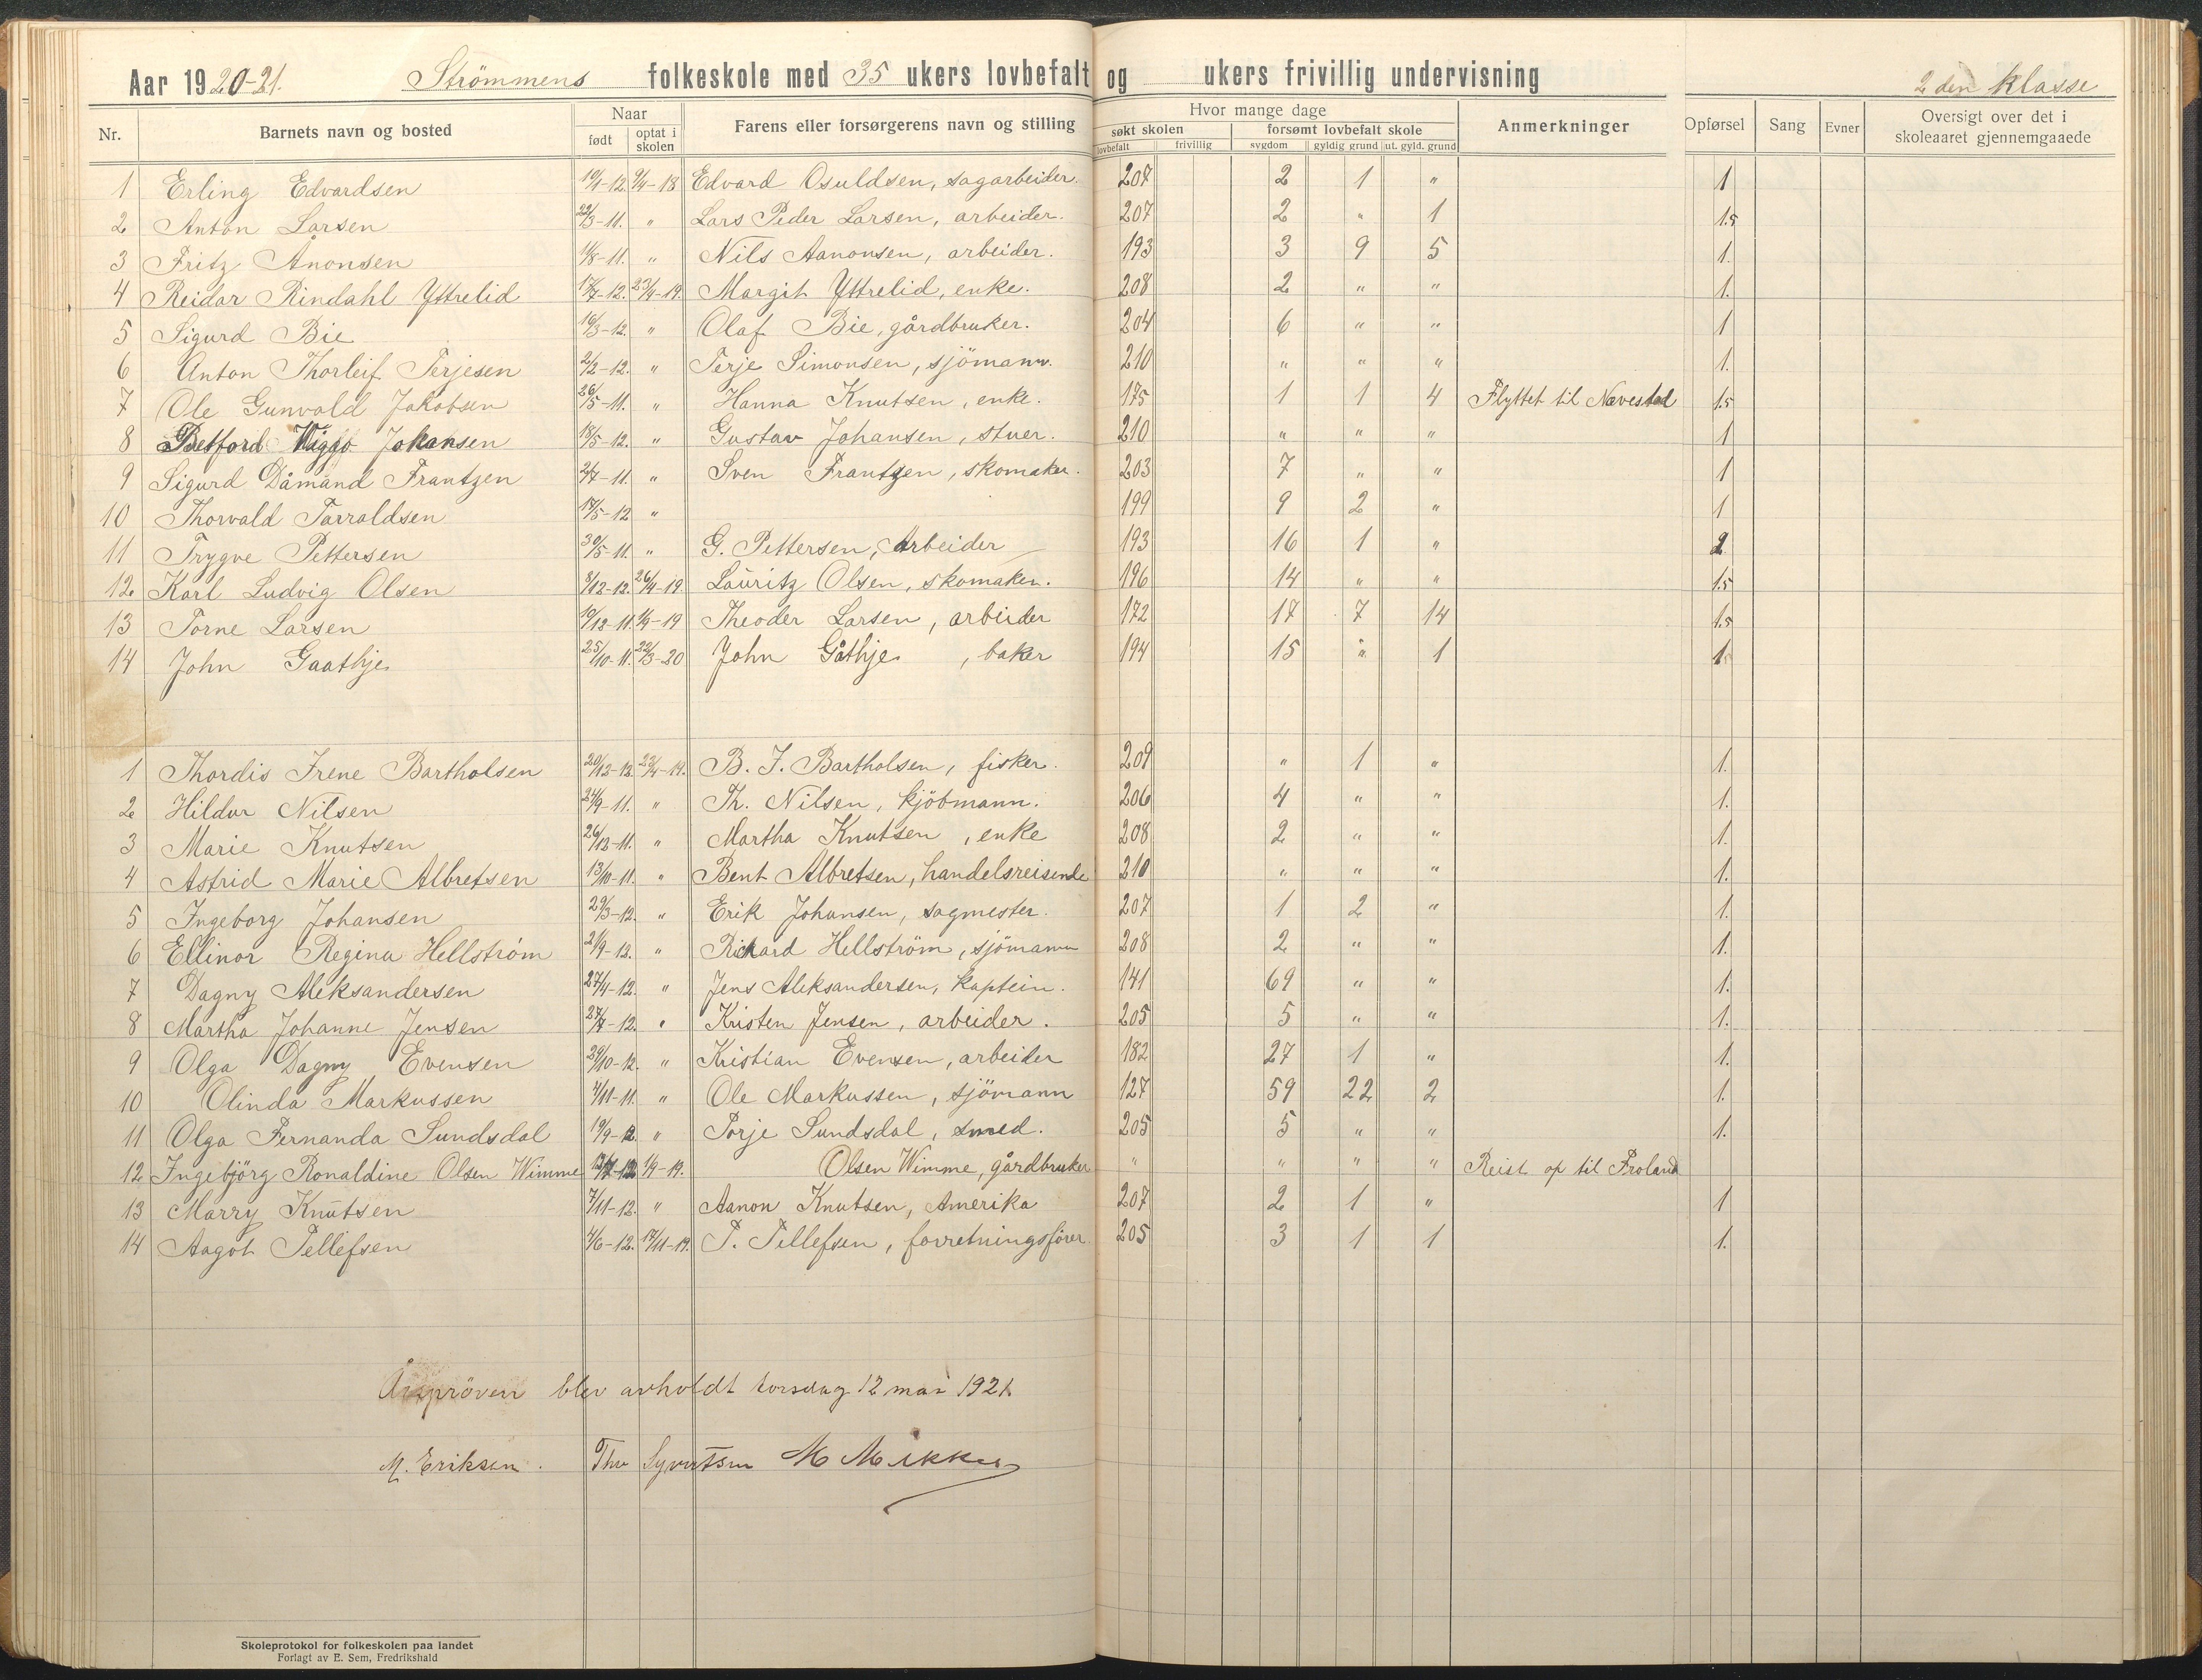 Aar 1920-21. Strömmens folkeskole med 35 ukers lovbefalt og ukers frivillig undervisning 2den klasse
Nr. Barnets navn og bosted Naar Farens eller forsørgerens navn og stilling Hvor mange dage Anmerkninger Opførsel Sang Evner Oversigt over det i skoleaaret gjennemgaaede
født optat i skolen søkt skolen forsømt lovbefalt skole
lovbefalt frivillig sygdom gyldig grund ut. gyld. grund
1 Erling Edvardsen 10/1-12. 9/4-18 Edvard Osuldsen, sagarbeider. 207 2 1 " 1
2 Anton Larsen 22/3-11. " Lars Peder Larsen, arbeider. 207 2 " 1 1.5
3 Fritz Anonsen 11/8-11. " Nils Aanonsen, arbeider. 193 3 9 5 1.
4 Reidar Rindahl Yttrelid 17/7-12. 23/4-19. Margit Yttrelid, enke. 208 2 " " 1.
5 Sigurd Bie 16/3-12. " Olaf Bie, gårdbruker. 204 6 " " 1
6 Anton Thorleif Terjesen 2/2-12. " Terje Simonsen, sjömann. 210 " " " 1.
7 Ole Gunvald Jakobsen 26/5-11. " Hanna Knutsen, enke. 175 1 1 4 Flyttet til Nævestad 1.5
8 Betford Viggo Johansen 18/5-12. " Gustav Johansen, stuer. 210 " " " 1
9 Sigurd Dåmand Frantzen 2/7-11. " Sven Frantzen, skomaker. 203 7 " " 1
10 Thorvald Tarraldsen 17/5-12 " 199 9 2 " 1
11 Trygve Pettersen 30/5-11. " G. Pettersen, Arbeider 193 16 1 " 2
12. Karl Ludvig Olsen 8/12-12. 26/4-19 Lauritz Olsen, skomaker. 196 14 " " 1.5
13 Torne Larsen 10/12-11. 1/9-19 Theoder Larsen, arbeider 172 17 7 14 1.5
14 John Gaathje 25/10-11. 22/3-20 John Gåthje, baker 194 15 " 1 1.
1 Thordis Irene Bartholsen 20/12-12. 23/4-19. B. J. Bartholsen, fisker. 209 " 1 " 1.
2 Hildur Nilsen 24/9-11. " Th. Nilsen, kjöbmann. 206 4 " " 1.
3 Marie Knutsen 26/12-11. " Martha Knutsen, enke 208 2 " " 1.
4 Astrid Marie Albretsen 13/10-11. " Bent Albretsen, handelsreisende 210 " " " 1.
5 Ingeborg Johansen 29/3-12. " Erik Johansen, sagmester. 207 1 2 " 1.
6 Ellinor Regina Hellström 2/9-12. " Rickard Hellström, sjömann 208 2 " " 1.
7 Dagny Aleksandersen 27/4-12. " Jens Aleksandersen, kaptein. 141 69 " " 1.
8 Martha Johanne Jensen 27/7-12. " Kristen Jensen, arbeider. 205 5 " " 1.
9 Olga Dagny Evensen 29/10-12. " Kristian Evensen, arbeider 182 27 1 " 1.
10 Olinda Markussen 4/11-11. " Ole Markussen, sjömann 127 59 22 2 1.
11 Olga Fernanda Sundsdal 19/9-12. " Torje Sundsdal, smed. 205 5 " " 1.
12 Ingebjörg Ronaldine Olsen Wimme 1/9-19. Olsen Wimme, gårdbruker " " " " Reist op til Froland
13 Marry Knutsen 7/11-12. " Aanon Knutsen, Amerika 207 2 1 " 1
14 Aagot Tellefsen 4/6-12. 17/11-19. T. Tellefsen, forretningsförer 205 3 1 1 1.
Årspröven blev avholdt torsdag 12 mai 1921.
M. Eriksen. Thv Syvertsen M Mikkes
Skoleprotokol for folkeskolen paa landet
Forlagt av E. Sem, Fredrikshald